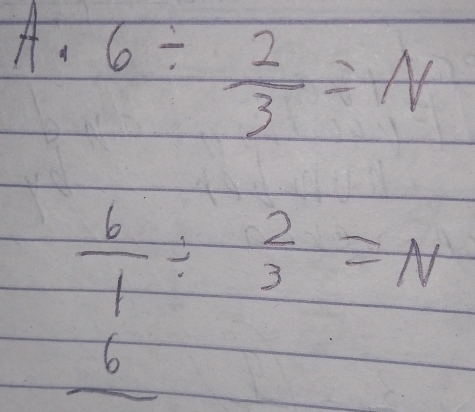 A. 6 ÷ 2/3 = N
6/1 ÷ 2/3 = N
6